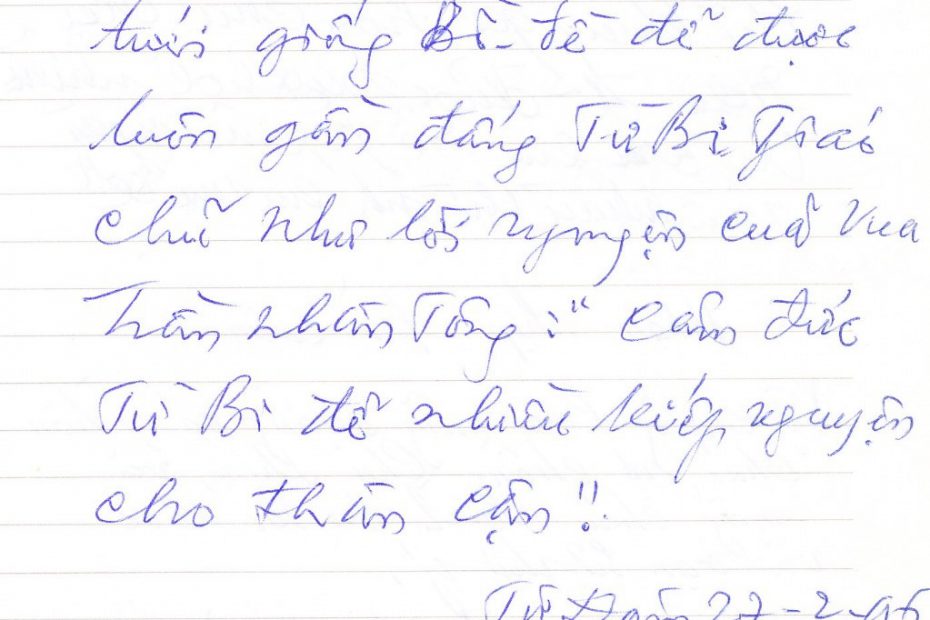 tưới giống Bồ-đề để được
luôn gần đấng Từ Bi Giáo
chủ như lời nguyện của Vua
Trần Nhân Tông : "Cảm đức
Từ Bi để nhiều kiếp nguyện
cho thân cận !!
Từ Đàm 27-2-